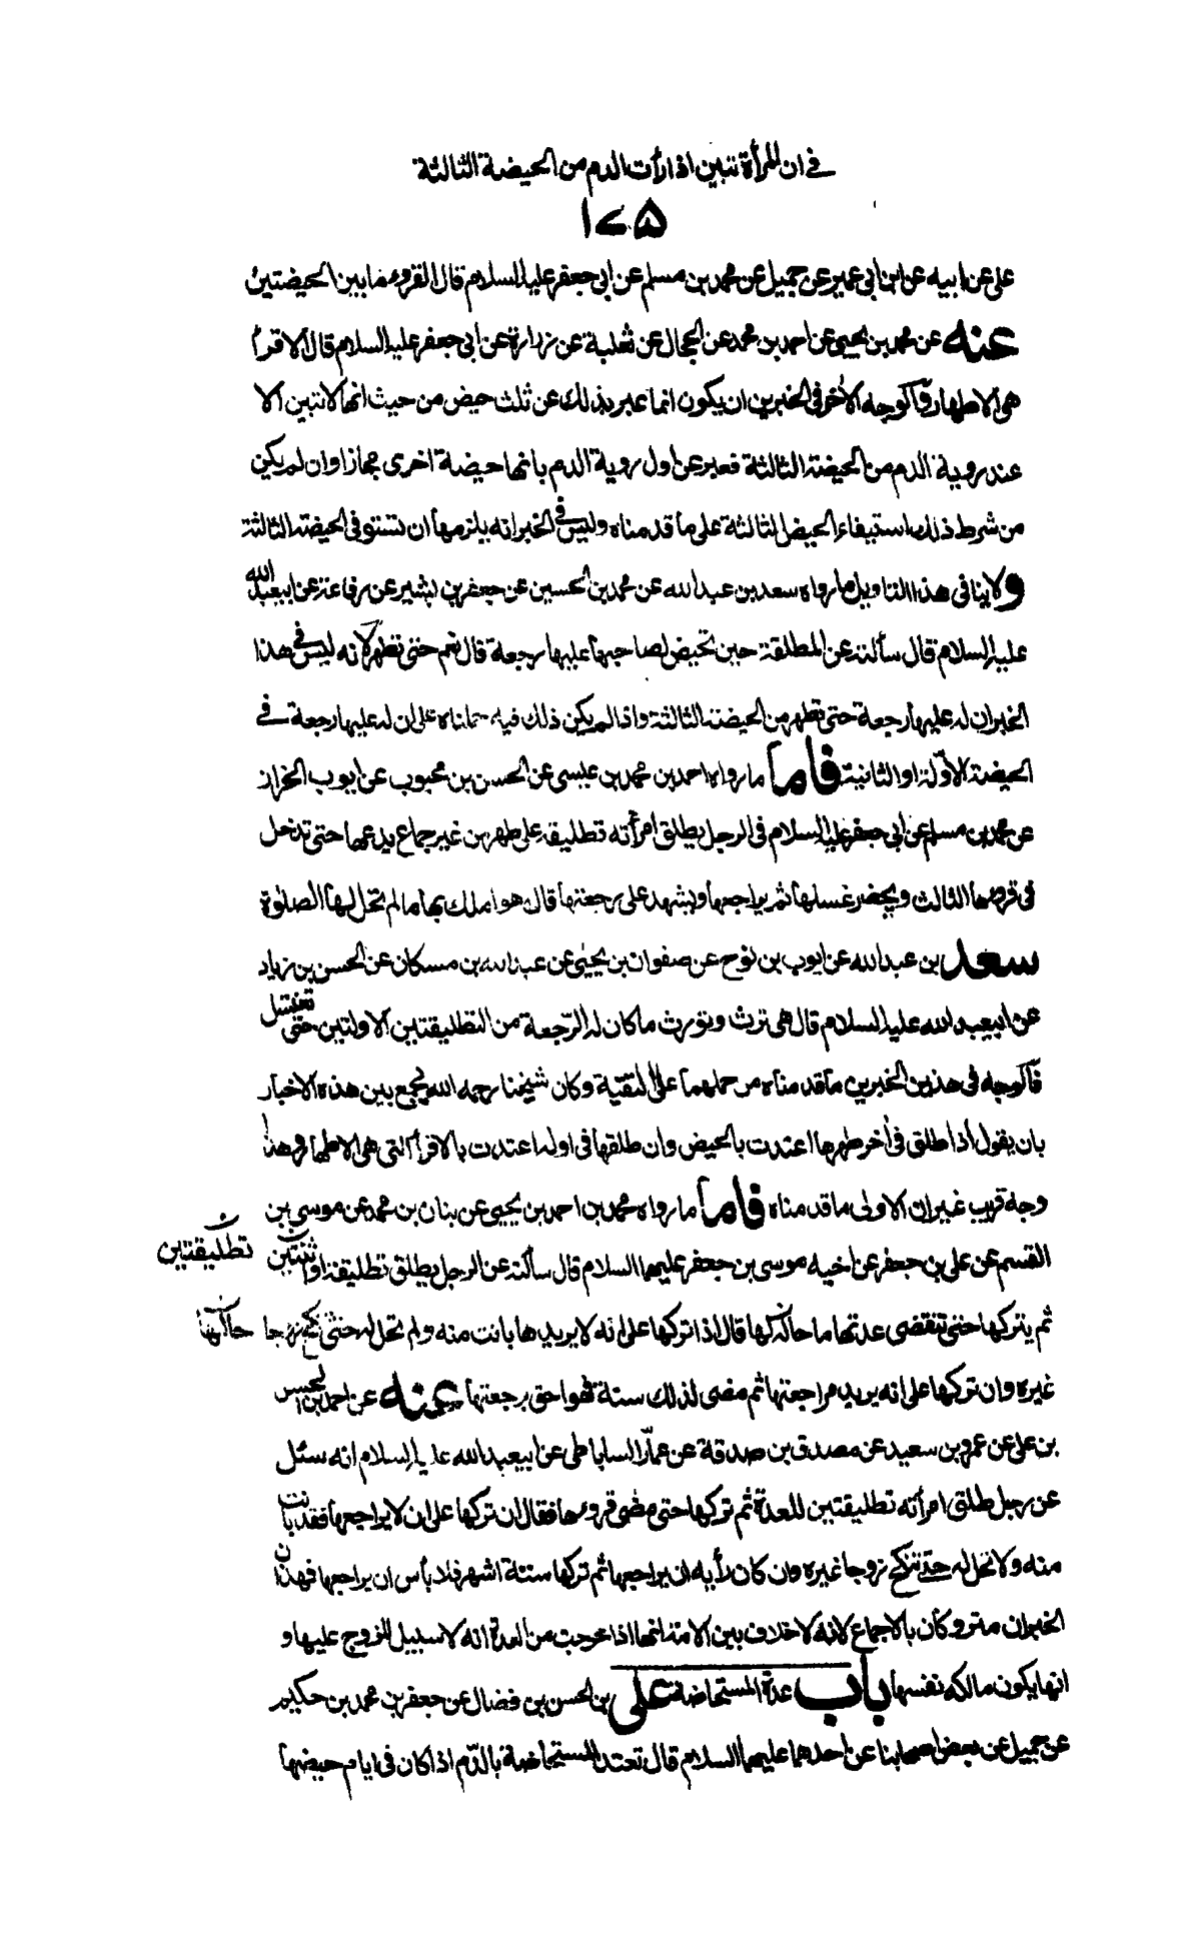 في ان المرأة تبين اذا رأت الدم من الحيضة الثالثة
١٧٥
علي عن ابيه عن ابن ابي عمير عن جميل عن محمد بن مسلم عن ابي جعفر عليه السلام قال القروء ما بين الحيضتين
عنه عن محمد بن يحيى عن احمد بن محمد عن الحجال عن ثعلبة عن زرارة عن ابي جعفر عليه السلام قال الاقرأ
هي الاطهار والوجه الآخر في الخبرين ان يكون انما عبر بذلك عن ثلث حيض من حيث انها لا تبين الا
عند روية الدم من الحيضة الثالثة فعبر عن اول روية الدم بانها حيضة اخرى مجازا وان لم يكن
من شرط ذلك استيفاء الحيض الثالثة على ما قدمناه وليس في الخبر انه يلزمها ان تستوفي الحيضة الثالثة
ولا ينافي هذا التاويل ما رواه سعد بن عبد الله عن محمد بن الحسين عن جعفر بن بشير عن رفاعة عن ابيعبد الله
عليه السلام قال سألته عن المطلقة حين تحيض لصاحبها عليها رجعة قال نعم حتى تطهر لانه ليس في هذا
الخبر ان له عليها رجعة حتى تطهر من الحيضة الثالثة واذا لم يكن ذلك فيه حملناه على ان له عليها رجعة في
الحيضة الاولة او الثانية فاما ما رواه احمد بن محمد بن عيسى عن الحسن بن محبوب عن ايوب الخزاز
عن محمد بن مسلم عن ابي جعفر عليه السلام في الرجل يطلق امرأته تطليقة على طهر من غير جماع يدعها حتى تدخل
في قروءها الثالث ويحضر غسلها ثم يراجعها ويشهد على رجعتها قال هو املك بها ما لم تحل لها الصلوة
سعد بن عبد الله عن ايوب بن نوح عن صفوان بن يحيى عن عبد الله بن مسكان عن الحسن بن زياد
عن ابيعبد الله عليه السلام قال هي ترث وتورث ما كان له الرجعة من التطليقتين الاولتين حتى تغتسل
فالوجه في هذين الخبرين ما قدمناه من حملهما على التقية وكان شيخنا رحمه الله يجمع بين هذه الاخبار
بان يقول اذا طلق في اخر طهرها اعتدت بالحيض وان طلقها في اوله اعتدت بالاقرأ التي هي الاطهار وهذا
وجه قريب غير ان الاولى ما قدمناه فاما ما رواه محمد بن احمد بن يحيى عن بنان بن محمد عن موسى بن
القسم عن علي بن جعفر عن اخيه موسى بن جعفر عليهما السلام قال سألته عن الرجل يطلق تطليقة او اثنتين
تطليقتين
ثم يتركها حتى تنقضي عدتها ما حالها قال اذا تركها على انه لا يريدها بانت منه ولم تحل له حتى تنكح زوجا
غيره وان تركها على انه يريد مراجعتها ثم مضى لذلك سنة فهو احق برجعتها عنه عن احمد بن الحسن
بن علي عن عمرو بن سعيد عن مصدق بن صدقة عن عمار الساباطي عن ابيعبد الله عليه السلام انه سئل
عن رجل طلق امرأته تطليقتين للعدة ثم تركها حتى مضى قروءها فقال ان تركها على ان لا يراجعها فقد بانت
منه ولا تحل له حتى تنكح زوجا غيره وان كان رأيه ان يراجعها ثم تركها ستة اشهر فلا بأس ان يراجعها فهذان
الخبران متروكان بالاجماع لانه لا خلاف بين الامة انها اذا خرجت من العدة انه لا سبيل للزوج عليها و
انها يكون مالكه نفسها باب عدة المستحاضة علي بن الحسن بن فضال عن جعفر بن محمد بن حكيم
عن جميل عن بعض اصحابنا عن احدهما عليهما السلام قال تعتد المستحاضة بالدم اذا كان في ايام حيضها